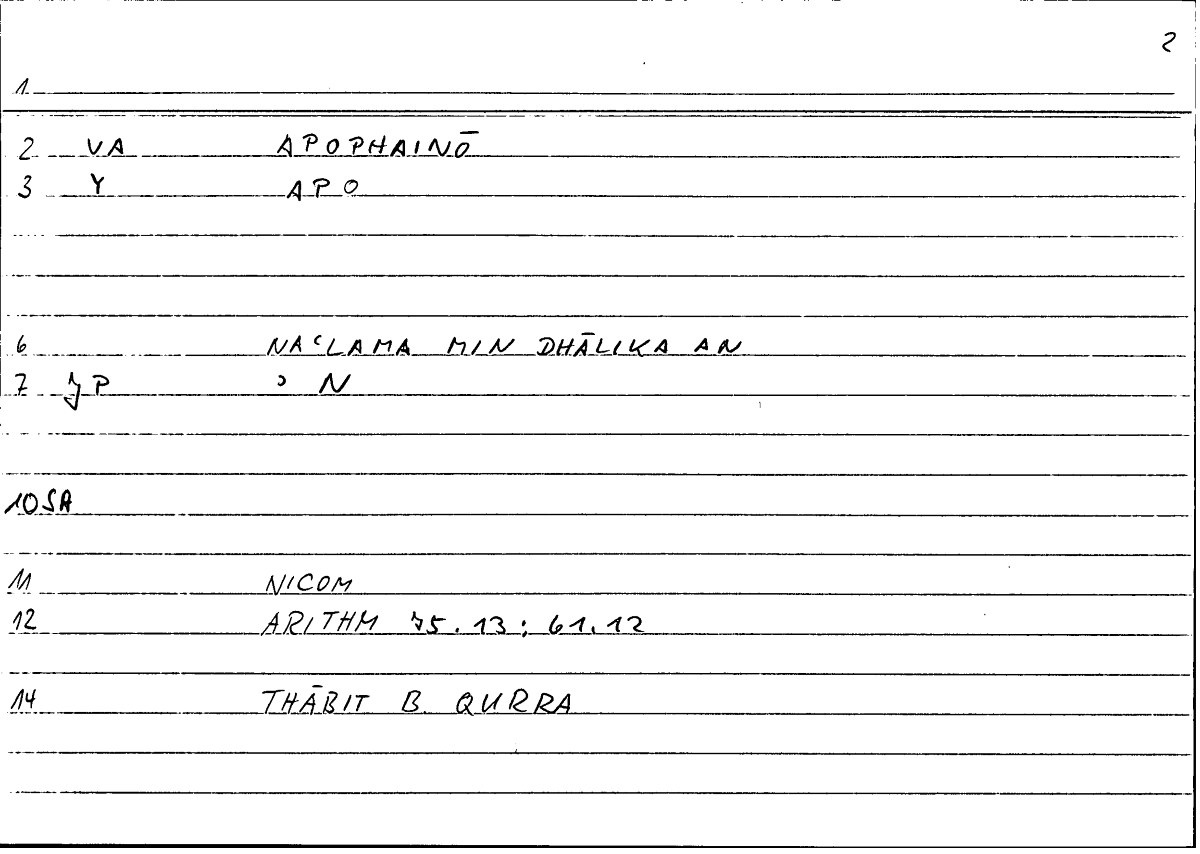 2
1
2 VA APOPHAINŌ
3 Y APO
6 NAʿLAMA MIN DHĀLIKA AN
7 P ʾ N
10 SA
11 NICOM
12 ARITHM 75.13; 61.12
14 THĀBIT B. QURRA